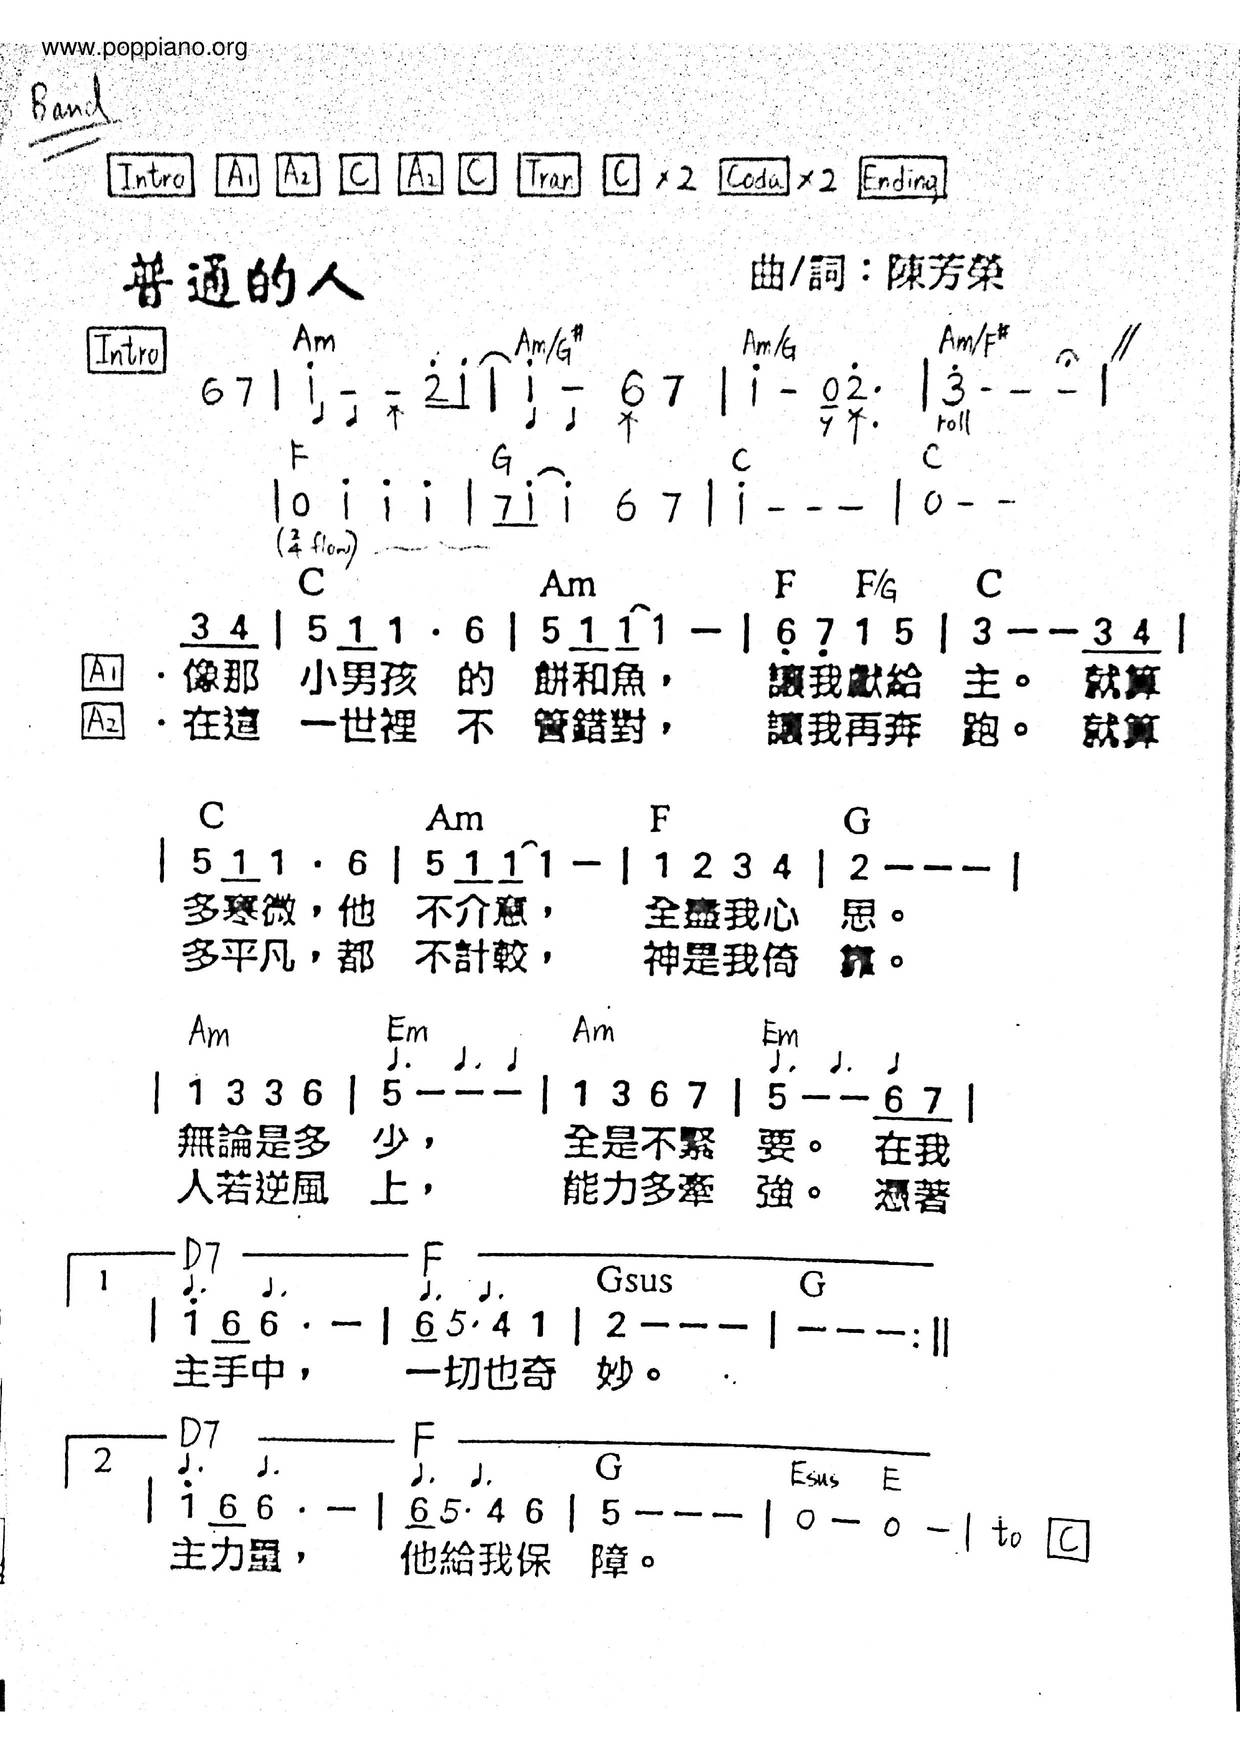 www.poppiano.org
Band
Intro A1 A2 C A2 C Tran C ×2 Coda ×2 Ending
普通的人 曲/詞：陳芳榮
Intro Am Am/G# Am/G Am/F#
6 7 | i - - 2 i | i - 6 7 | i - 0 2 · | 3 - - - |
roll
F G C C
| 0 i i i | 7 i i 6 7 | i - - - | 0 - -
(2/4 flow)
C Am F F/G C
3 4 | 5 1 1 · 6 | 5 1 1 1 — | 6 7 1 5 | 3 — — 3 4 |
A1 · 像那 小男孩 的 餅和魚， 讓我獻給 主。 就算
A2 · 在這 一世裡 不 管錯對， 讓我再奔 跑。 就算
C Am F G
| 5 1 1 · 6 | 5 1 1 1 — | 1 2 3 4 | 2 — — — |
多寒微，他 不介意， 全盡我心 思。
多平凡，都 不計較， 神是我倚 靠。
Am Em Am Em
| 1 3 3 6 | 5 — — — | 1 3 6 7 | 5 — — 6 7 |
無論是多 少， 全是不緊 要。 在我
人若逆風 上， 能力多牽 強。 憑著
1 D7 F Gsus G
| i 6 6 · — | 6 5 · 4 1 | 2 — — — | — — — :||
主手中， 一切也奇 妙。
2 D7 F G Esus E
| i 6 6 · — | 6 5 · 4 6 | 5 — — — | 0 — 0 — | to C
主力量， 他給我保 障。